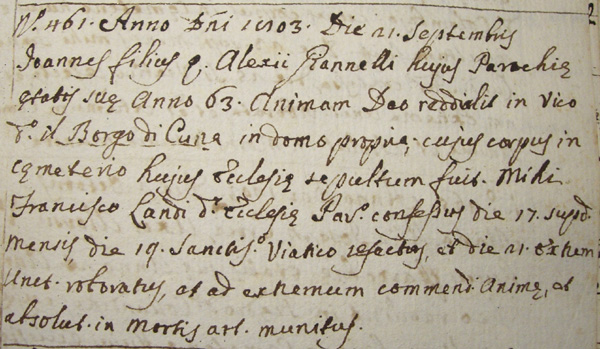 2
N.º 461. Anno Dñi 1703. Die 21. Septembris
Joannes filius q. Alexii Giannelli hujus Parochię
ętatis suę Anno 63. Animam Deo reddidit in vico
d.º il Borgo di Cuna in domo propria; cujus corpus in
cęmeterio hujus Ecclesię sepultum fuit. Mihi
Francisco Landi d.ę Ecclesię Par.º confessus die 17. supd.
mensis, die 19. Sanctis.º Viatico refectus, et die 21. Extrem.
Unct. roboratus, at ad extremum commend. Animę, et
absolut. in Mortis art. munitus.